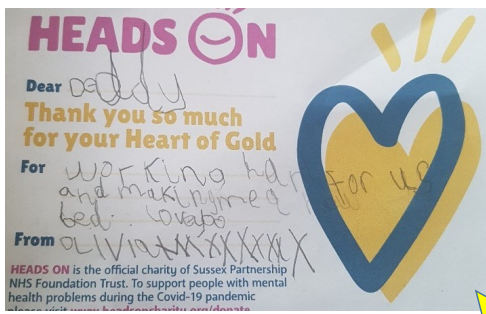 HEADS ON
Dear Daddy
Thank you so much
for your Heart of Gold
For working har for us
and making me a
bed.
From OLIVIA XXXXXXXX
HEADS ON is the official charity of Sussex Partnership
NHS Foundation Trust. To support people with mental
health problems during the Covid-19 pandemic
please visit www.headsoncharity.org/donate